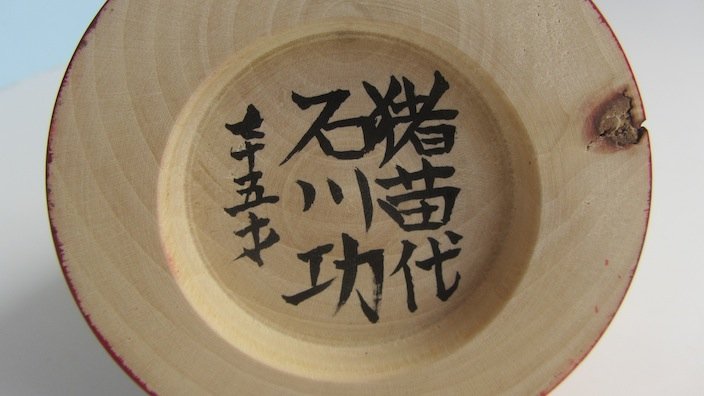 猪苗代
石川功
七十五才